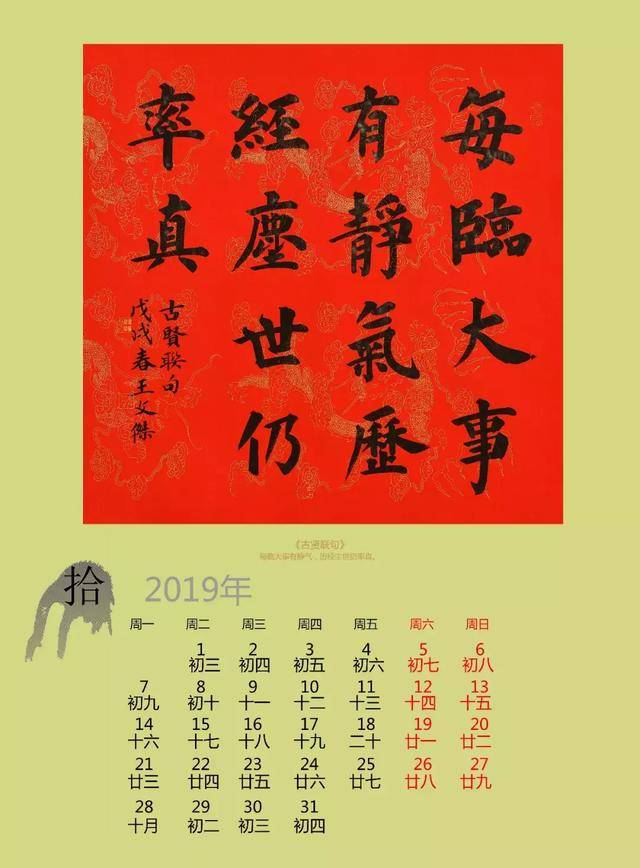 每臨大事
有靜氣歷
經塵世仍
率真
古賢聯句
戊戌春王文傑
《古贤联句》
每临大事有静气，历经尘世仍率真。
拾
2019年
周一 周二 周三 周四 周五 周六 周日
1 2 3 4 5 6
初三 初四 初五 初六 初七 初八
7 8 9 10 11 12 13
初九 初十 十一 十二 十三 十四 十五
14 15 16 17 18 19 20
十六 十七 十八 十九 二十 廿一 廿二
21 22 23 24 25 26 27
廿三 廿四 廿五 廿六 廿七 廿八 廿九
28 29 30 31
十月 初二 初三 初四